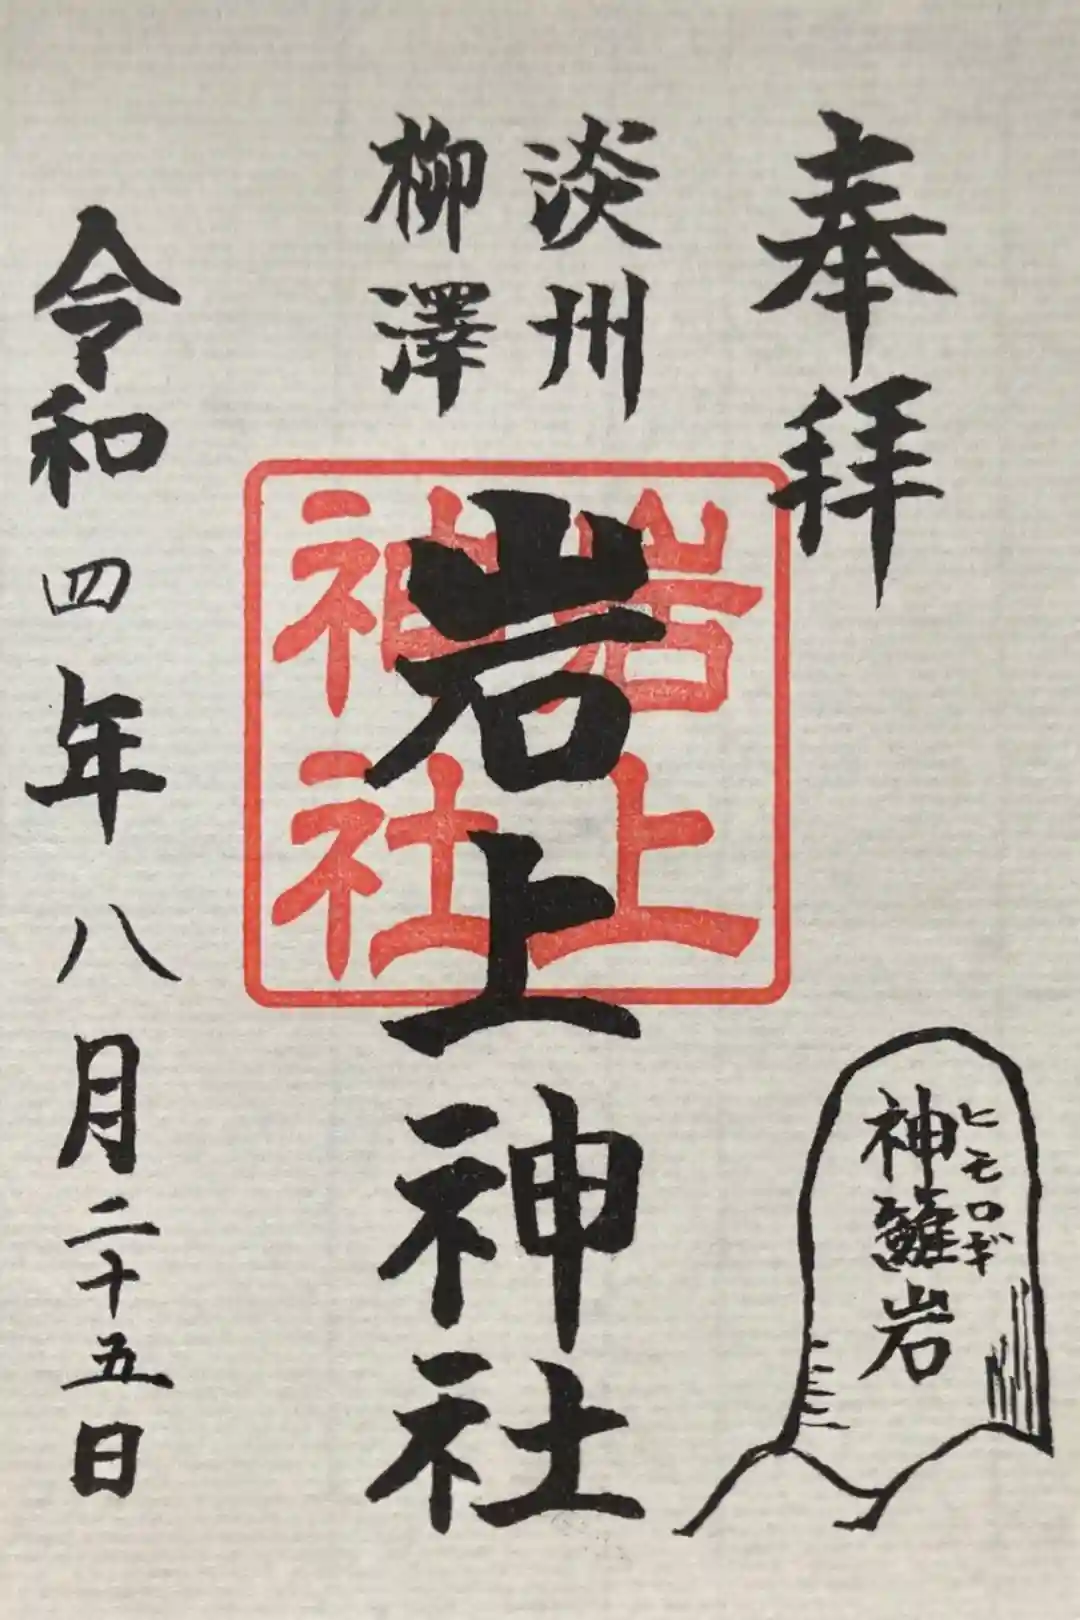 奉拝
淡州
柳澤
岩上神社
岩上
神社
令和四年八月二十五日
神籬岩
ヒモロギ